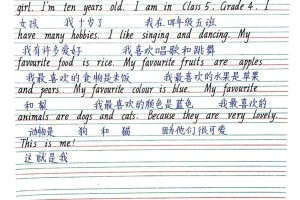 girl. I'm ten years old. I am in Class 5. Grade 4. I
女孩 我十岁了 我在四年级五班
have many hobbies. I like singing and dancing. My
我有许多爱好 我喜欢唱歌和跳舞
favourite food is rice. My favourite fruits are apples
我最喜欢的食物是米饭 我最喜欢的水果是苹果
and pears. My favourite colour is blue. My favourite
和梨 我最喜欢的颜色是蓝色 我最喜欢的
animals are dogs and cats. Because they are very lovely.
动物是 狗 和 猫 因为他们很可爱
This is me!
这就是我